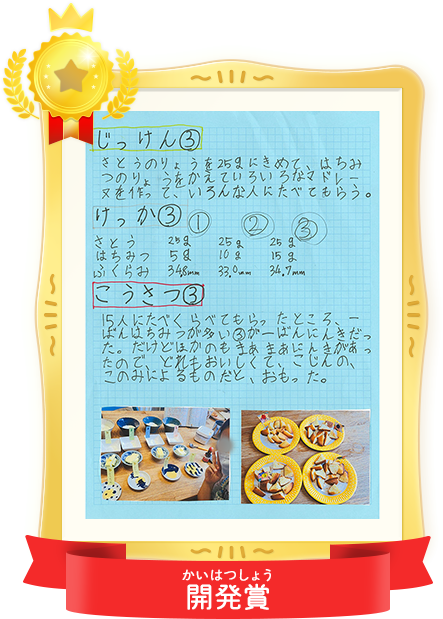 じっけん③
さとうのりょうを25gにきめて、はちみ
つのりょうをかえていろいろなマドレー
ヌを作って、いろんな人にたべてもらう。
けっか③ ① ② ③
さとう 25g 25g 25g
はちみつ 5g 10g 15g
ふくらみ 34.8mm 33.0mm 34.7mm
こうさつ③
15人にたべくらべてもらったところ、一
ばんはちみつが多い③が一ばんにんきだっ
た。だけどほかのもまあまあにんきがあっ
たので、どれもおいしくて、こじんの、
このみによるものだと、おもった。
かいはつしょう
開発賞